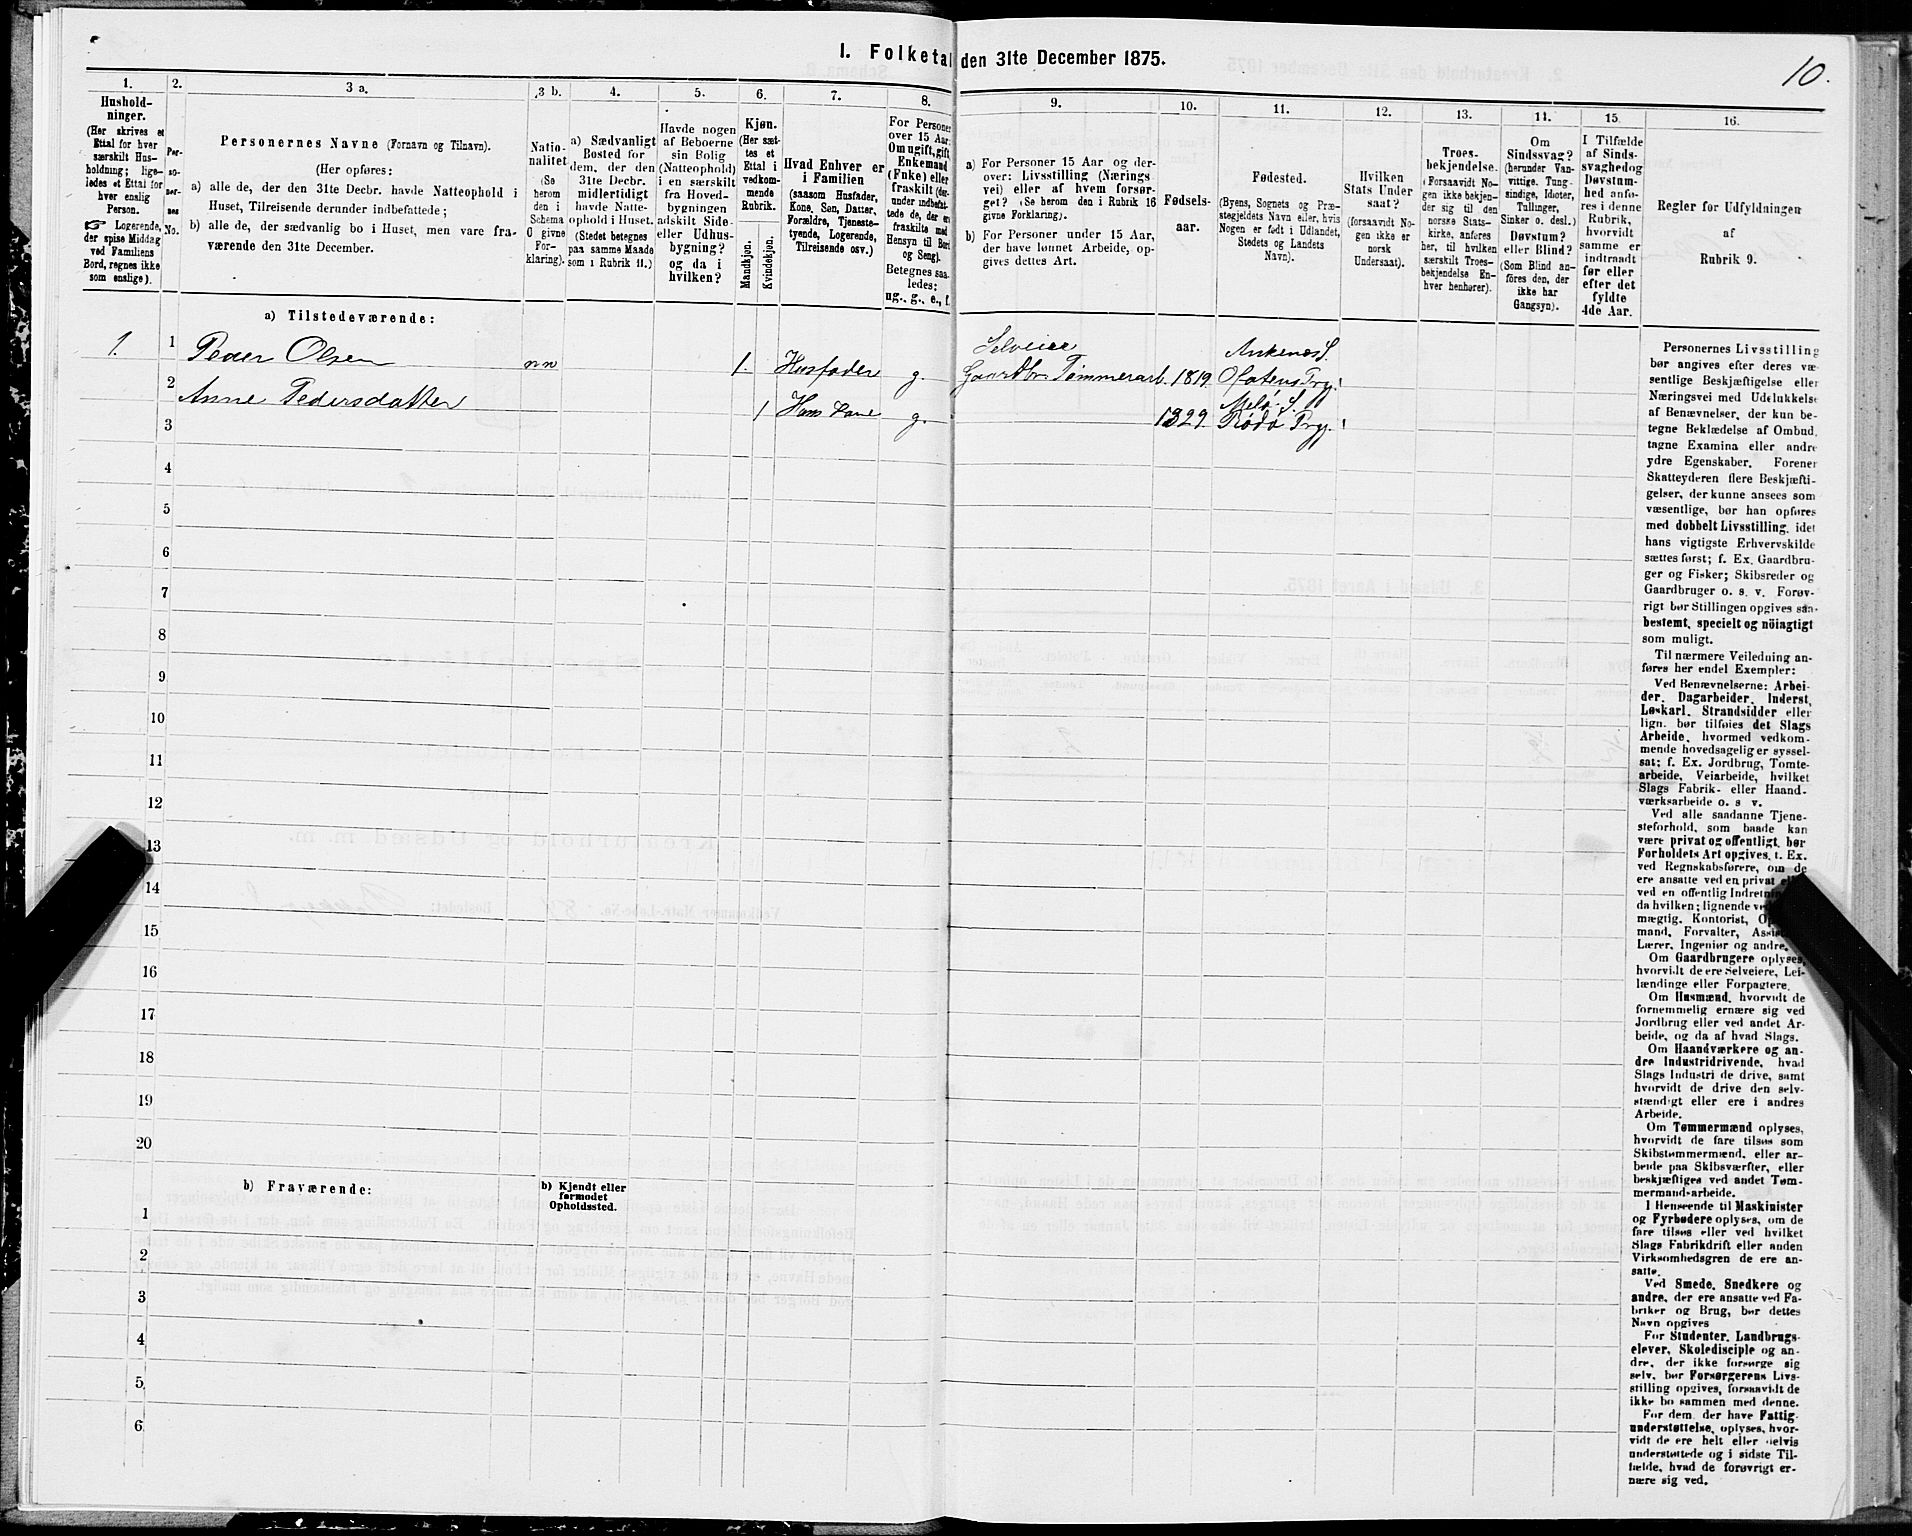 I. Folketal den 31te December 1875.
10.
1.
Hushold-
ninger.
(Her skrives et
Ettal for hver
særskilt Hus-
holdning; lige-
ledes et Ettal for
hver enslig
Person.
☞ Logerende,
der spise Middag
ved Familiens
Bord, regnes ikke
som enslige).
2.
Per-
so-
ner-
nes
No.
3 a.
Personernes Navne (Fornavn og Tilnavn).
(Her opføres:
a) alle de, der den 31te Decbr. havde Natteophold i
Huset, Tilreisende derunder indbefattede;
b) alle de, der sædvanlig bo i Huset, men vare fra-
værende den 31te December.
3 b.
Natio-
nalitet
(Se
herom
den i
Schema
O givne
For-
klaring).
4.
a) Sædvanligt
Bosted for
dem, der den
31te Decbr.
midlertidigt
havde Natte-
ophold i Huset.
(Stedet betegnes
paa samme Maade
som i Rubrik 11.)
5.
Havde nogen
af Beboerne
sin Bolig
(Natteophold)
i en særskilt
fra Hoved-
bygningen
adskilt Side-
eller Udhus-
bygning?
og da i
hvilken?
6.
Kjøn.
(Her sæt-
tes et
Ettal i
vedkom-
mende
Rubrik.
Mandkjøn.
Kvindekjøn.
7.
Hvad Enhver er
i Familien
(saasom Husfader,
Kone, Søn, Datter,
Forældre, Tjeneste-
tyende, Logerende,
Tilreisende osv.)
8.
For Personer
over 15 Aar:
Om ugift, gift,
Enkemand
(Enke) eller
fraskilt (der-
under indbefat-
tede de, der ere
fraskilte med
Hensyn til Bord
og Seng).
Betegnes saa-
ledes:
ug., g., e., f.
9.
a) For Personer 15 Aar og der-
over: Livsstilling (Nærings
vei) eller af hvem forsør-
get? (Se herom den i Rubrik 16
givne Forklaring).
b) For Personer under 15 Aar,
der have lønnet Arbeide, op-
gives dettes Art.
10.
Fødsels-
aar.
11.
Fødested.
(Byens, Sognets og Præ-
stegjeldets Navn eller, hvis
Nogen er født i Udlandet,
Stedets og Landets
Navn).
12.
Hvilken
Stats Under
saat?
(forsaavidt No-
gen ikke er
norsk
Undersaat).
13.
Troes-
bekjendelse.
(Forsaavidt No-
gen ikke bekjen-
der sig til den
norske Stats-
kirke, anføres
her, til hvilken
særskilt Troes-
bekjendelse En-
hver henhører).
14.
Om
Sindssvag?
(herunder Van-
vittige, Tung-
sindige, Idioter,
Tullinger,
Sinker o. desl.)
Døvstum?
eller Blind?
(Som Blind an-
føres den, der
ikke har
Gangsyn).
15.
I Tilfælde
af Sinds-
svaghed og
Døvstum-
hed anfø-
res i denne
Rubrik,
hvorvidt
samme er
indtraadt
før eller
efter det
fyldte
4de Aar.
16.
Regler for Udfyldningen
af
Rubrik 9.
a) Tilstedeværende:
1. 1 Peder Olsen nn 1. Husfader g. Selveier
Gaardbr. Tømmerarb. 1819. Ankenæs S.
Ofotens Prgj.
2 Anne Pedersdatter 1 Hans Kone g. 1829. Melø S.
Rødø Prgj.
3
4
5
6
7
8
9
10
11
12
13
14
15
16
17
18
19
20
b) Fraværende:
b) Kjendt eller
formodet
Opholdssted.
1
2
3
4
5
6
Personernes Livsstilling
bør angives efter deres væ-
sentlige Beskjæftigelse eller
Næringsvei med Udelukkelse
af Benævnelser, der kun be-
tegne Beklædelse af Ombud,
tagne Examina eller andre
ydre Egenskaber. Forener
Skatteyderen flere Beskjæfti-
gelser, der kunne ansees som
væsentlige, bør han opføres
med dobbelt Livsstilling, idet
hans vigtigste Erhvervskilde
sættes først; f. Ex. Gaardbru-
ger og Fisker; Skibsreder og
Gaardbruger o. s. v. Forøv-
rigt bør Stillingen opgives saa
bestemt, specielt og nöiagtigt
som muligt.
Til nærmere Veiledning an-
føres her endel Exempler:
Ved Benævnelserne: Arbei-
der, Dagarbeider, Inderst,
Løskarl, Strandsidder eller
lign. bør tilføies det Slags
Arbeide, hvormed vedkom-
mende hovedsagelig er syssel-
sat; f. Ex. Jordbrug, Tomte-
arbeide, Veiarbeide, hvilket
Slags Fabrik- eller Haand-
værksarbeide o. s v.
Ved alle saadanne Tjene-
steforhold, som baade kan
være privat og offentligt, bør
Forholdets Art opgives, t. Ex.
ved Regnskabsførere, om de
ere ansatte ved en privat
ved en offentlig
da hvilken; lignende
mægtig, Kontorist,
mand, Forvalter,
Lærer, Ingeniør og andre.
Om Gaardbrugere oplyses,
hvorvidt de ere Selveiere, Lei-
lændinge eller Forpagtere.
Om Husmænd, hvorvidt de
fornemmelig ernære sig ved
Jordbrug eller ved andet Ar-
beide, og da af hvad Slags.
Om Haandværkere og an-
dre Industridrivende, hvad
Slags Industri de drive, samt
hvorvidt de drive den selv-
stændigt eller ere i andres
Arbeide.
Om Tømmermænd oplyses,
hvorvidt de fare tilsøs som
Skibstømmermænd, eller ar-
beide paa Skibsværfter, eller
beskjæftiges ved andet Tøm-
mermandsarbeide.
I Henseende til Maskinister
og Fyrbødere oplyses, om de
fare tilsøs eller ved hvilket
Slags Fabrikdrift eller anden
Virksomhedsgren de ere an-
satte.
Ved Smede, Snedkere og
andre, der ere ansatte ved Fa-
briker og Brug, bør dettes
Navn opgives
For Studenter, Landbrugs-
elever, Skoledisciple og an-
dre, der ikke forsørge sig
selv, bør Forsørgerens Livs-
stilling opgives, forsaavidt de
ikke bo sammen med denne.
For dem, der have Fattig-
understøttelse, oplyses, hvor-
vidt de ere helt eller delvis
understøttede og i sidste Til-
fælde, hvad de forøvrigt er-
nære sig ved.